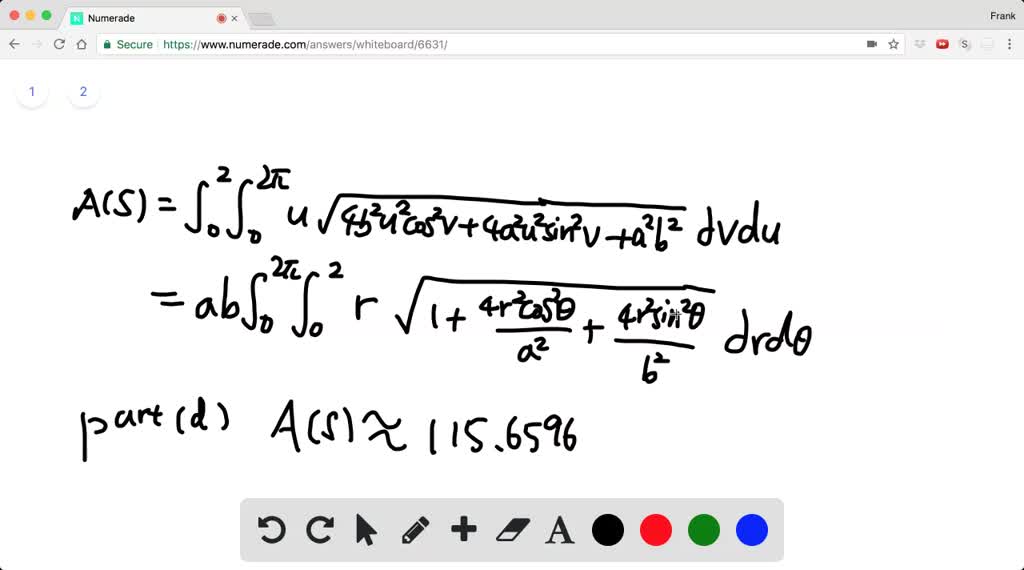 Numerade
Frank
Secure https://www.numerade.com/answers/whiteboard/6631/
1 2
A(S) = ∫₀² ∫₀^2π u √(4b²u²cos²v + 4a²u²sin²v + a²b²) dvdu
= ab ∫₀^2π ∫₀² r √(1 + 4r²cos²θ/a² + 4r²sin²θ/b²) drdθ
part (d) A(S) ≈ 115.6596
A